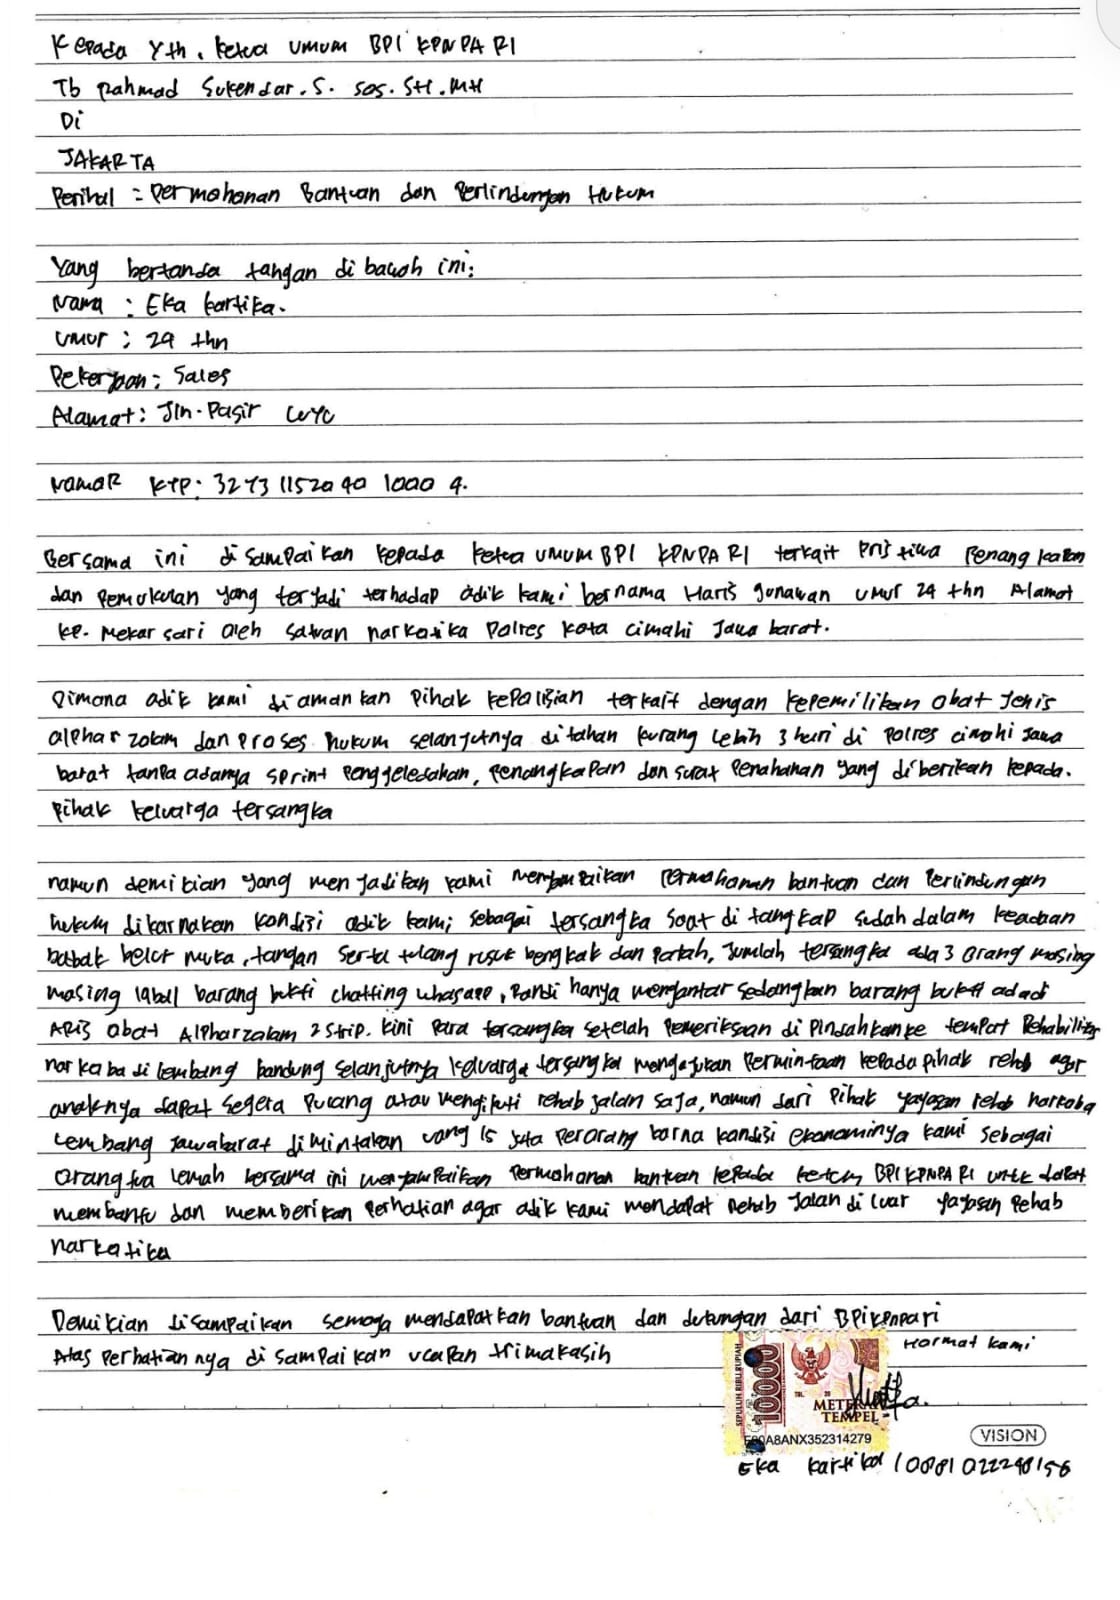 Kepada Yth. Ketua Umum BPI KPNPA RI
Tb Rahmad Sukendar. S. Sos. SH. MH
Di
JAKARTA
Perihal = Permohonan Bantuan dan Perlindungan Hukum
Yang bertanda tangan di bawah ini:
Nama : Eka kartika.
Umur : 29 thn
Pekerjaan : Sales
Alamat : Jln. Pasir
Nomor KTP:
Bersama ini disampaikan kepada ketua umum BPI KPNPA RI terkait pristiwa penangkapan
dan pemukulan yang terjadi terhadap adik kami bernama Haris gunawan umur 24 thn Alamat
kp. Mekar sari oleh satuan narkotika Polres kota cimahi Jawa barat.
Dimana adik kami diamankan Pihak kepolisian terkait dengan kepemilikan obat jenis
alphar zolam dan proses hukum selanjutnya ditahan kurang lebih 3 hari di polres cimahi jawa
barat tanpa adanya sprint penggeledahan, penangkapan dan surat penahanan yang diberikan kepada.
Pihak keluarga tersangka
namun demikian yang menjadikan kami menyampaikan permohonan bantuan dan perlindungan
hukum dikarnakan kondisi adik kami sebagai tersangka saat di tangkap sudah dalam keadaan
babak belur muka, tangan serta tulang rusuk bengkak dan patah, jumlah tersangka ada 3 orang masing
masing iqbal barang bukti chatting whasapp, Randi hanya mengantar sedangkan barang bukti ada di
ARis obat Alpharzolam 2 strip. kini para tersangka setelah pemeriksaan di pindahkan ke tempat Rehabilitas
narkoba di lembang bandung selanjutnya keluarga tersangka mengajukan Permintaan kepada pihak rehab agar
anaknya dapat segera pulang atau mengikuti rehab jalan saja, namun dari Pihak yayasan rehab narkoba
Lembang jawabarat dimintakan uang 15 juta perorang karna kondisi ekonominya kami sebagai
orang tua lemah bersama ini menyampaikan Permohonan bantuan kepada ketum BPI KPNPA RI untuk dapat
membantu dan memberikan Perhatian agar adik kami mendapat Rehab Jalan di luar yayasan Rehab
narkotika
Demikian disampaikan semoga mendapatkan bantuan dan dukungan dari BPi kpnpari
Hormat kami
Atas perhatiannya di sampaikan ucapan trimakasih
SEPULUH RIBU RUPIAH
10000
TGL. 20
METERAI
TEMPEL
A8ANX352314279
VISION
Eka kartika / 0881022298156